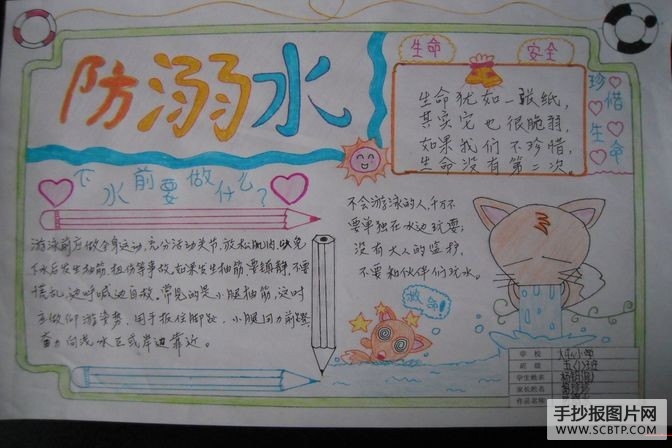 防溺水
生命 安全
生命犹如一张纸，
其实它也很脆弱，
如果我们不珍惜，
生命没有第二次。
珍惜生命
下水前要做什么？
游泳前应做全身运动，充分活动关节，放松肌肉，以免
下水后发生抽筋、扭伤等事故。如果发生抽筋，要镇静，不要
慌乱，边呼喊边自救。常见的是小腿抽筋，这时
应做仰游姿势，用手扳住脚趾，小腿用力前蹬，
奋力向浅水区或岸边靠近。
不会游泳的人，千万不
要单独在水边玩耍；
没有大人的监护，
不要和伙伴们玩水。
救命！
学 校
班 级
学生姓名
家长姓名
作品名称
手抄报图片网
WWW.SCBTP.COM